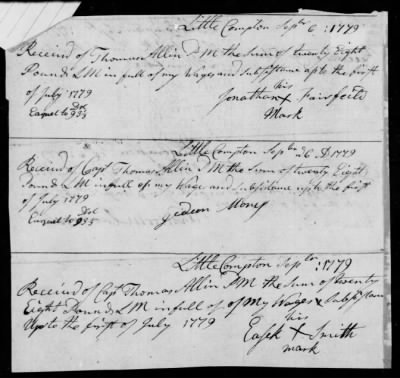 Little Compton Sepr 6: 1779
Receivd of Thomas Allin P M the Sum of twenty Eight
Pounds LM in full of my Wage and Subsistance upto the first
of July 1779
his
Jonathan X Fairfeild
Mark
Eaquel to 93⅓ Dol
Little Compton Sepbr 6 D 1779
Receivd of Capt Thomas Allin P M the Sum of twenty Eight
Pound LM in full of my Wage and Subsistance upto the first
of July 1779
Eaquel to Dol
Gideon Money
Little Compton Sepbr : 1779
Receivd of Capt Thomas Allin P M the Sum of twenty
Eight Pound LM in full of of My Wages & Subsistan
Upto the first of July 1779
his
Easek X Smith
mark